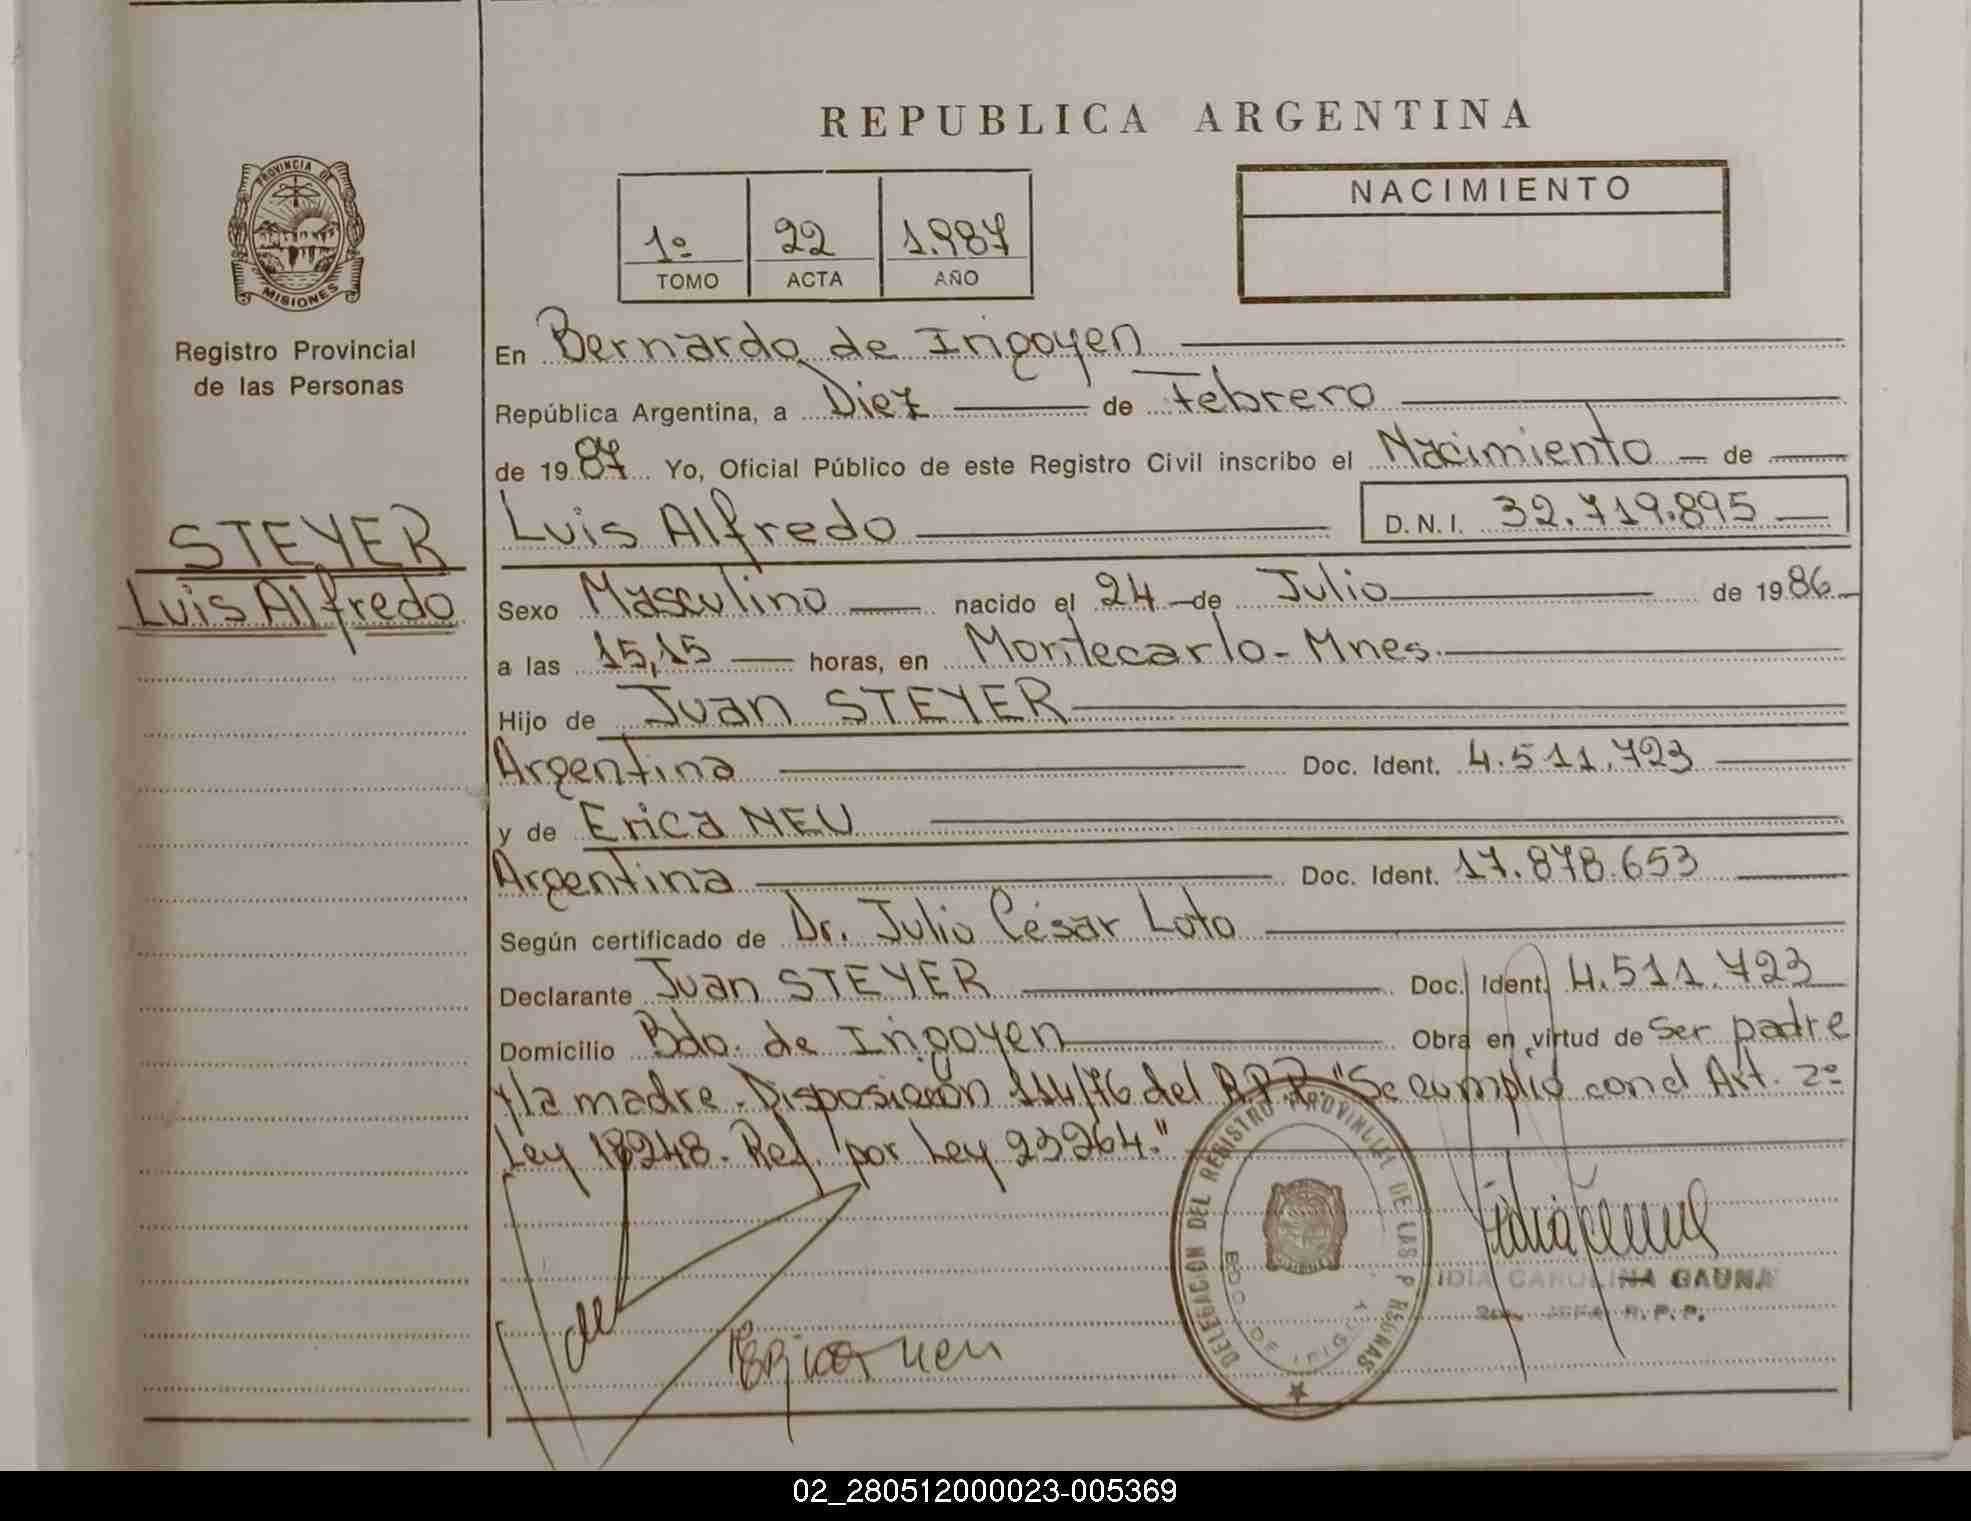 REPUBLICA ARGENTINA
PROVINCIA DE MISIONES
Registro Provincial
de las Personas
1º 22 1.987
TOMO ACTA AÑO
NACIMIENTO
En Bernardo de Irigoyen
República Argentina, a Diez de Febrero
de 1987 Yo, Oficial Público de este Registro Civil inscribo el Nacimiento de
STEYER
Luis Alfredo
Luis Alfredo D.N.I. 32.719.895
Sexo Masculino nacido el 24 de Julio de 1986
a las 15,15 horas, en Montecarlo - Mnes.
Hijo de Juan STEYER
Argentina Doc. Ident. 4.511.723
y de Erica NEU
Argentina Doc. Ident. 17.878.653
Según certificado de Dr. Julio César Loto
Declarante Juan STEYER Doc. Ident. 4.511.723
Domicilio Bdo. de Irigoyen Obra en virtud de ser padre
y la madre. Disposición 114/76 del R.P.P. "Se cumplió con el Art. 2º
Ley 18248. Ref. por Ley 23264."
DELEGACION DEL REGISTRO PROVINCIAL DE LAS PERSONAS
BDO. DE IRIGOY
IDIA CAROLINA GAUNA
JEFA R.P.P.
02_280512000023-005369